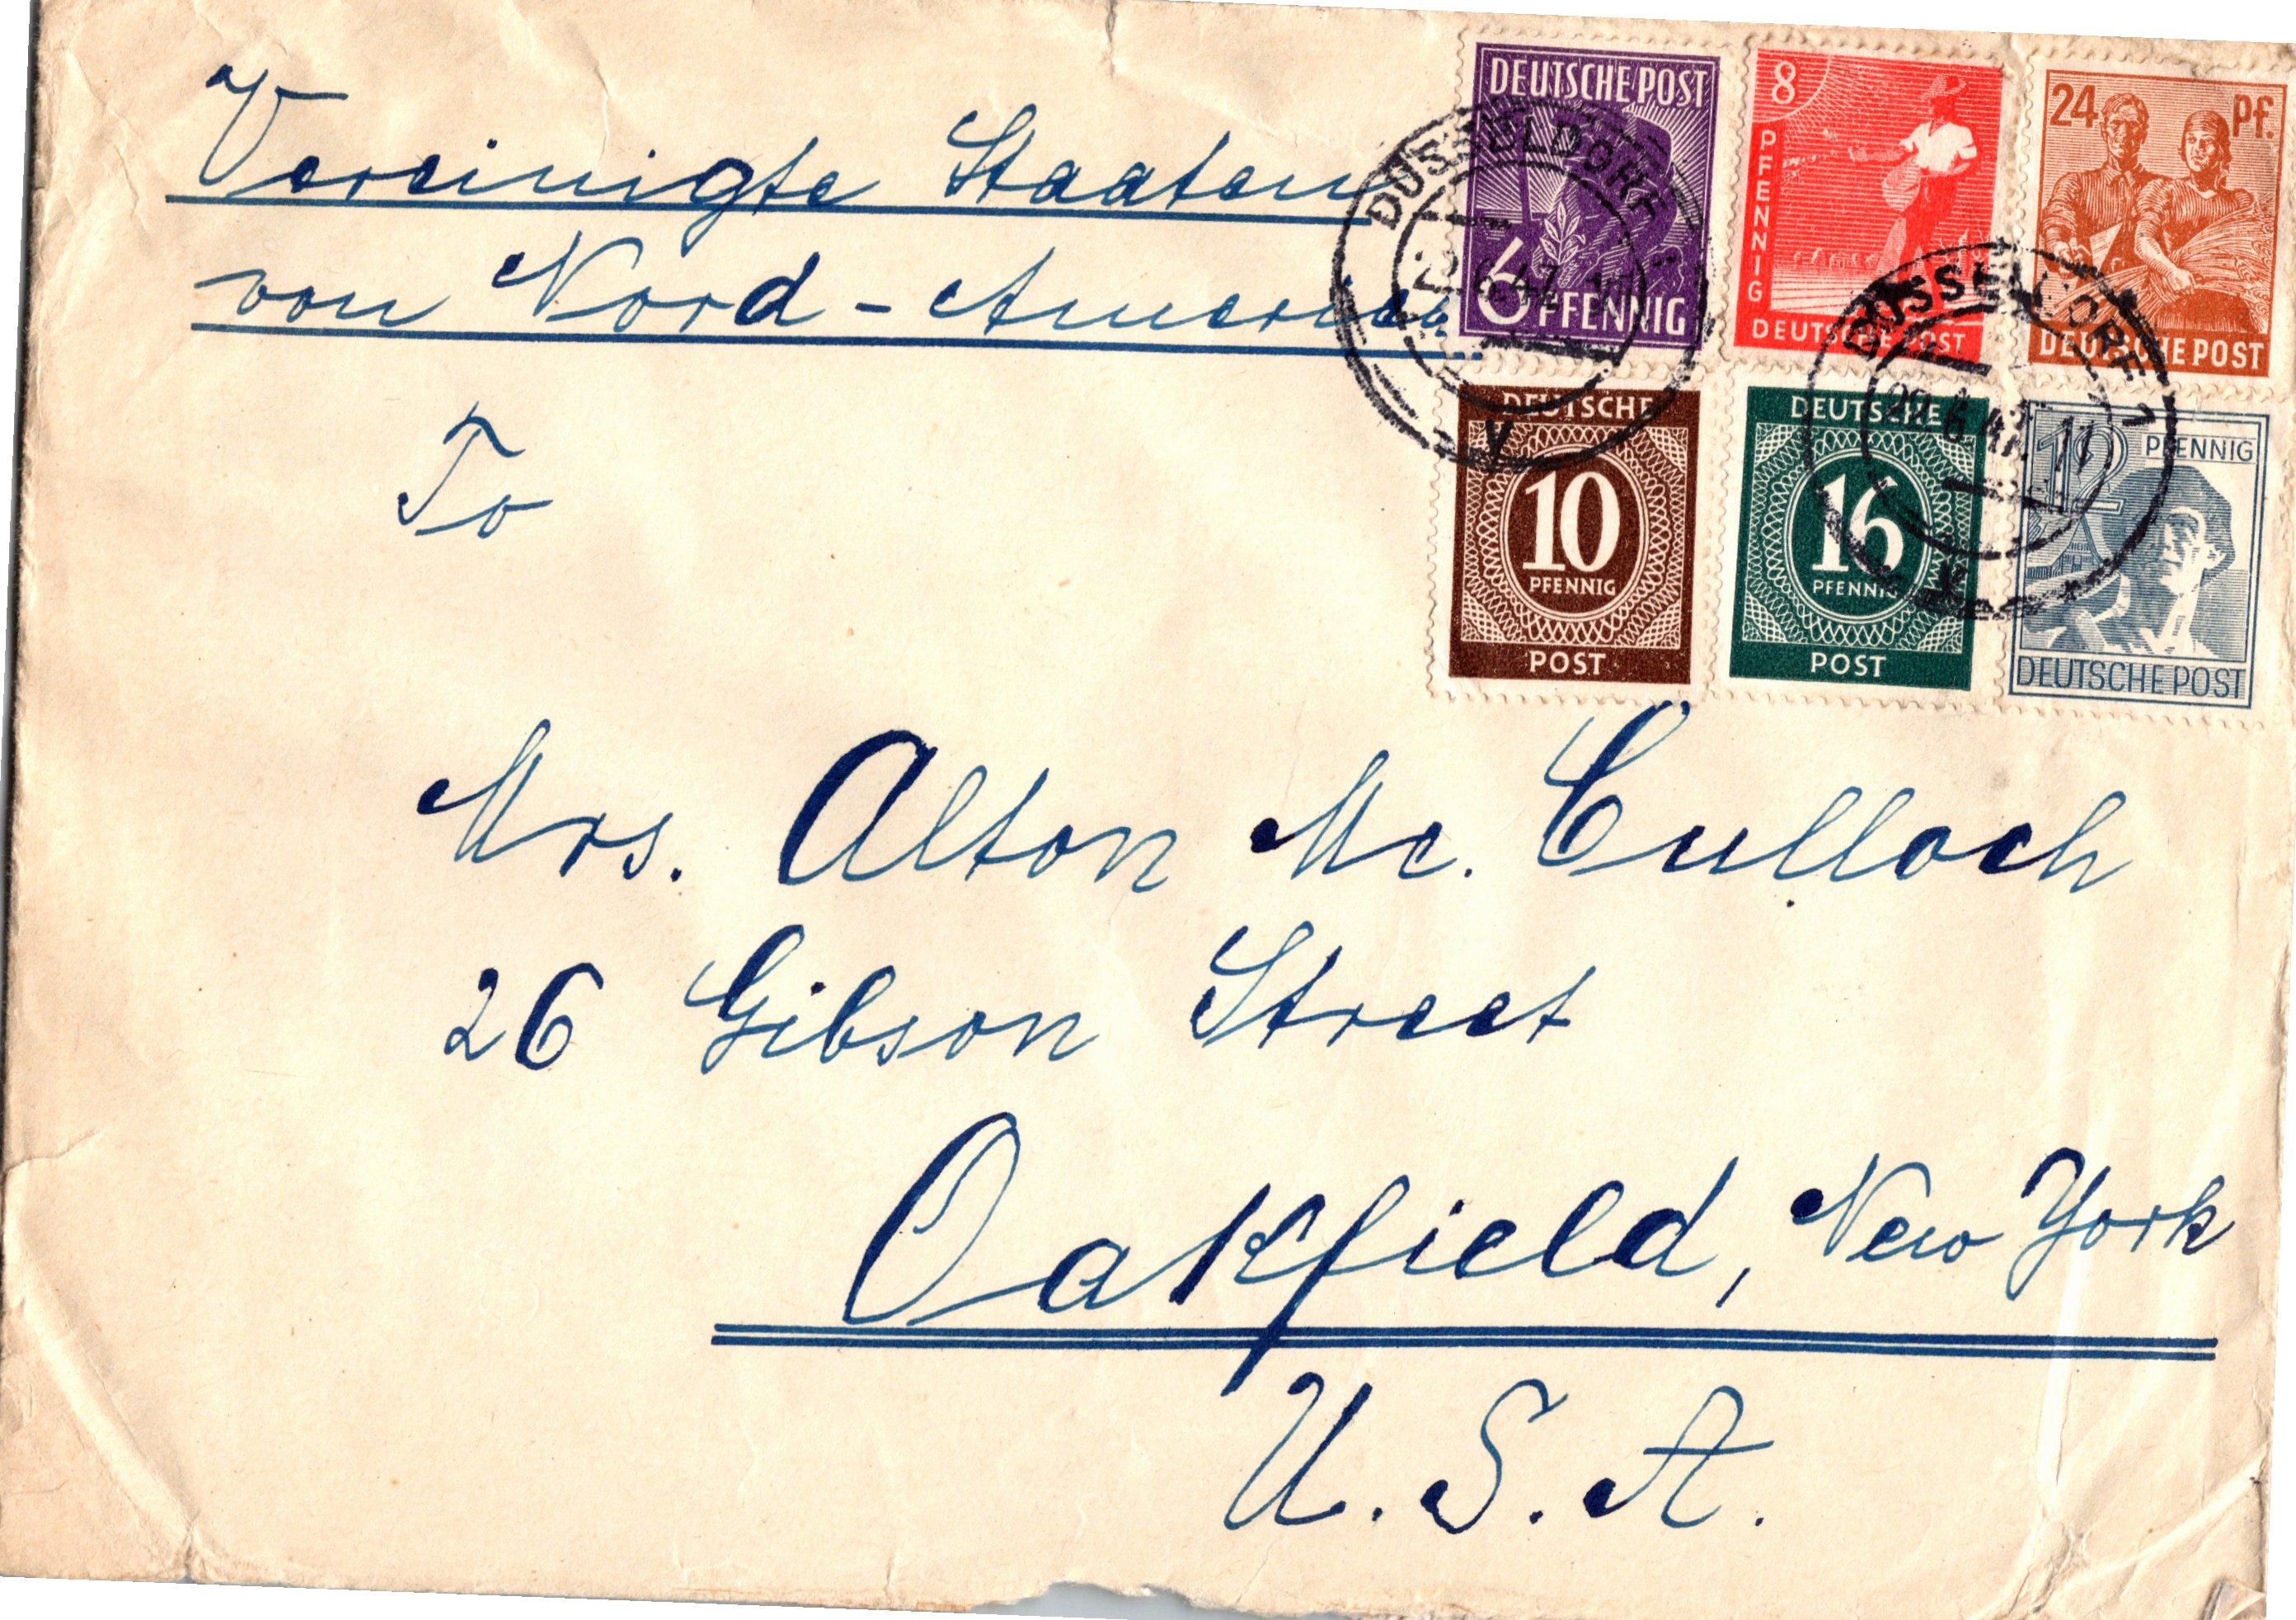 Vereinigte Staaten
von Nord-Amerika
To
Mrs. Alton Mc. Culloch
26 Gibson Street
Oakfield, New York
U.S.A.
DEUTSCHE POST
6 PFENNIG
8
PFENNIG
DEUTSCHE POST
24 Pf.
DEUTSCHE POST
DEUTSCHE
10
PFENNIG
POST
DEUTSCHE
16
PFENNIG
POST
12 PFENNIG
DEUTSCHE POST
DÜSSELDORF
6.47
DÜSSELDORF 1
6.47. 11